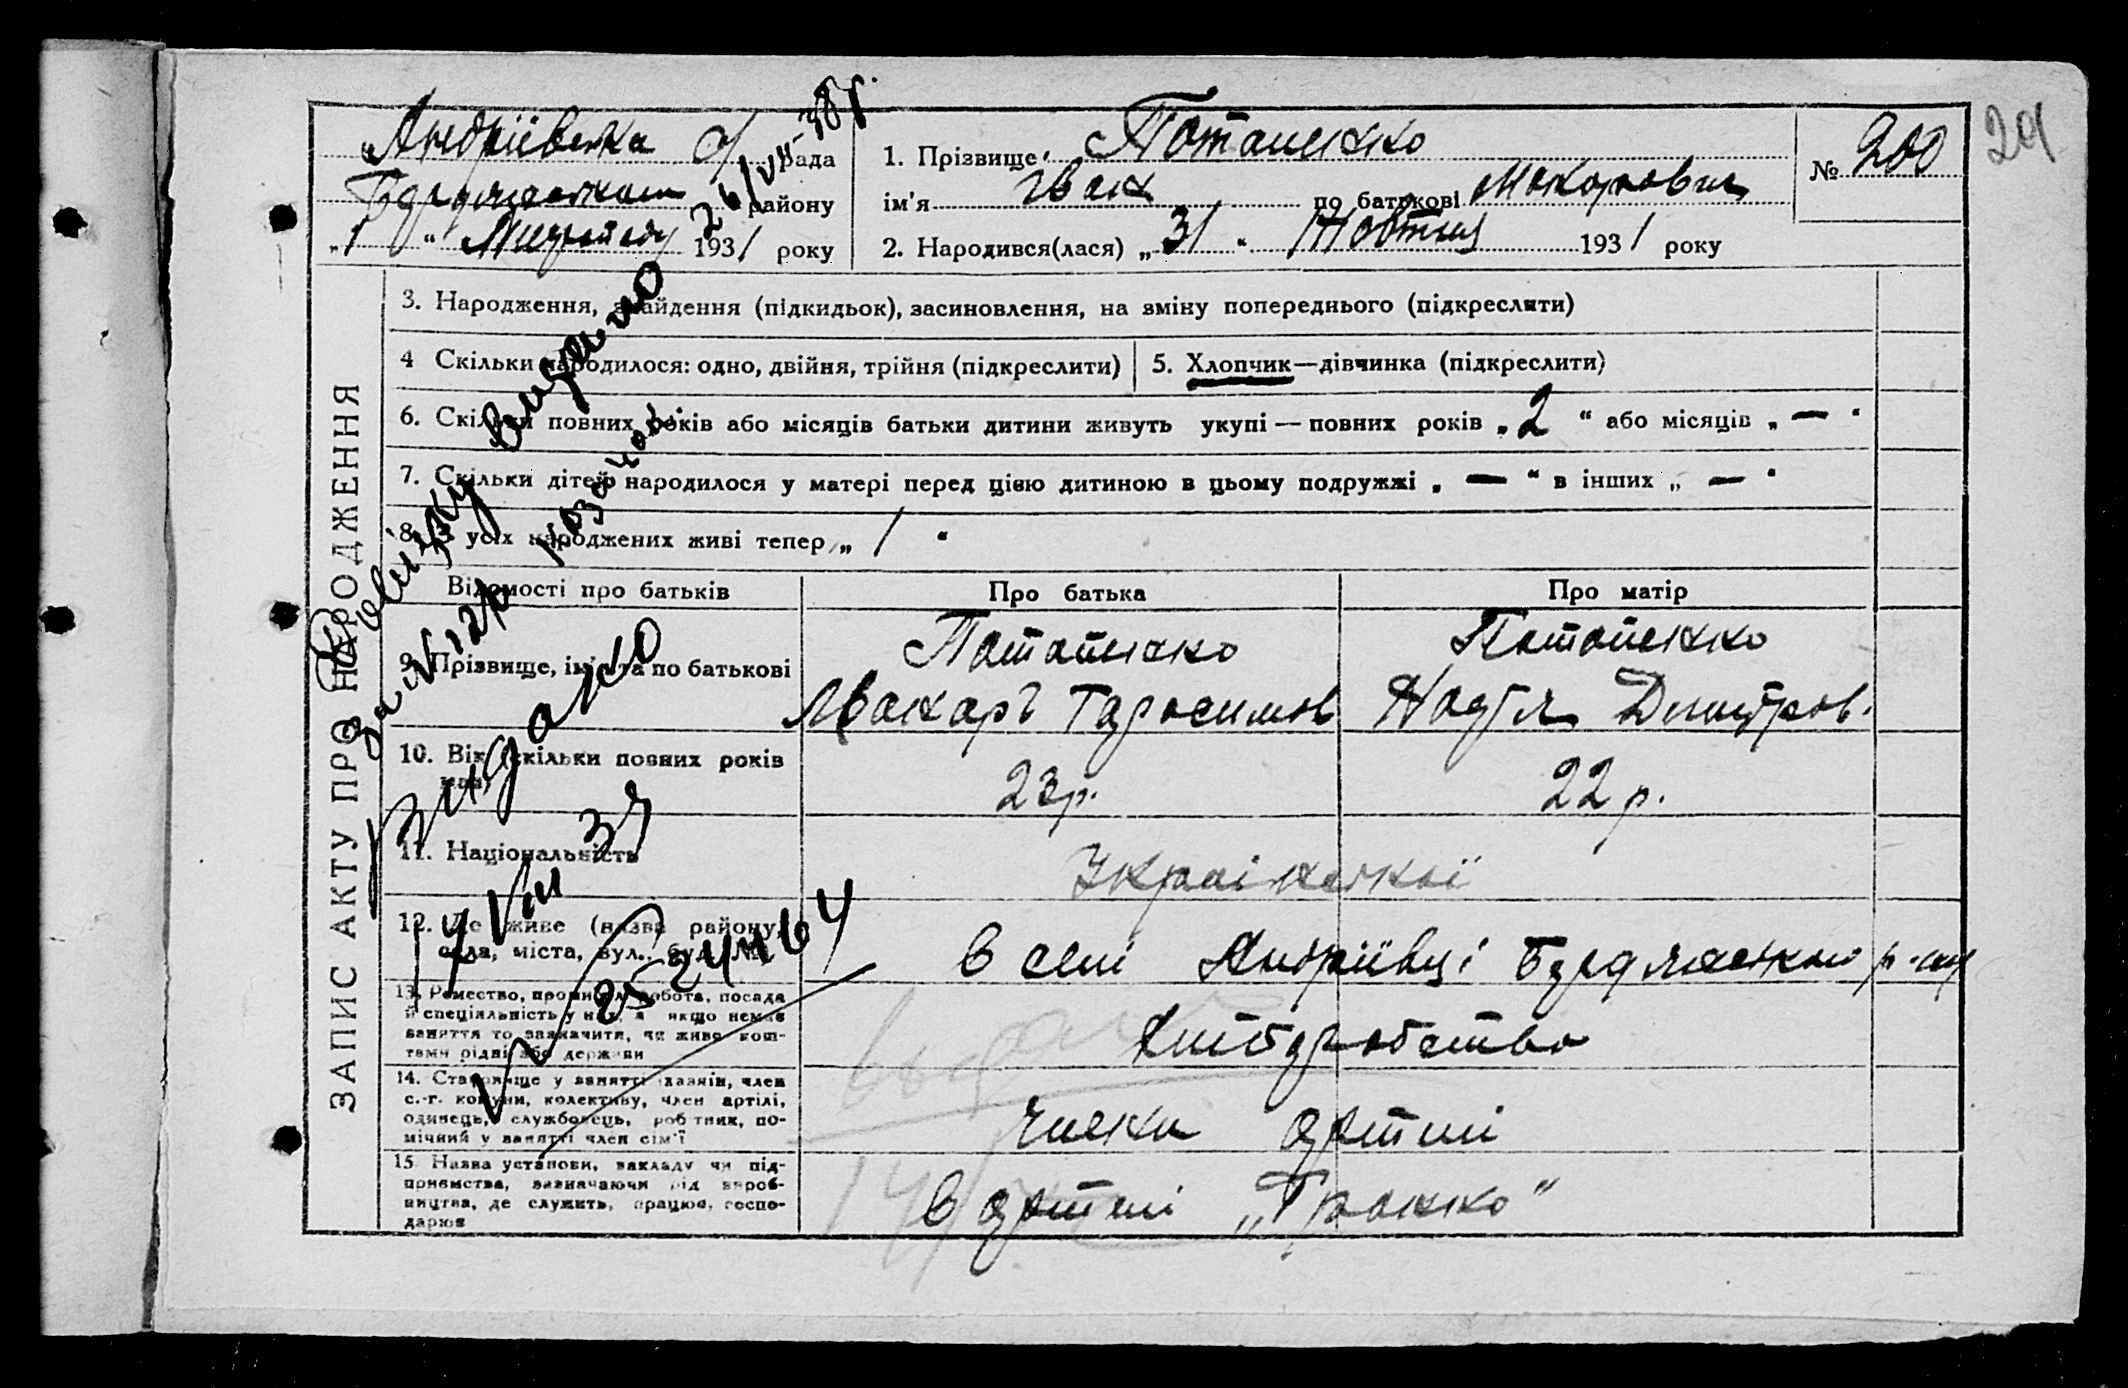 Андріївська с/ рада
Бердянського району
„1“ Листопаду 1931 року
1. Прізвище Потапенко
ім'я Іван по батькові Макарович
2. Народився(лася) „31“ Жовтня 1931 року
№ 200
29
ЗАПИС АКТУ ПРО НАРОДЖЕННЯ
3. Народження, знайдення (підкидьок), засиновлення, на зміну попереднього (підкреслити)
4 Скільки народилося: одно, двійня, трійня (підкреслити)
5. Хлопчик—дівчинка (підкреслити)
6. Скільки повних років або місяців батьки дитини живуть укупі — повних років „2“ або місяців „—“
7. Скільки дітей народилося у матері перед цією дитиною в цьому подружжі „—“ в інших „—“
8. З усіх народжених живі тепер „1“
Відомості про батьків
Про батька
Про матір
9. Прізвище, ім'я та по батькові
Потапенко
Макарь Гарасимов
Потапенко
Надія Дмитров.
10. Вік (скільки повних років має)
23р.
22 р.
11. Національність
Української
12. Де живе (назва району,
села, міста, вул., буд. №)
в селі Андріївці Бердянського р-ну
13. Ремество, промисел, робота, посада
й спеціяльність у них, а якщо немає
заняття то зазначити, чи живе кош-
тами рідні або держави
Хліборобство
14. Становище у занятті хазяїн, член
с.-г. комуни, колективу, член артілі,
одинець, службовець, робітник, по-
мічний у занятті член сім'ї
члени артілі
15. Назва установи, закладу чи під-
приємства, зазначаючи рід вироб-
ництва, де служить, працює, госпо-
дарює
в артілі „Тр
видано
Видано
14 VIII 37